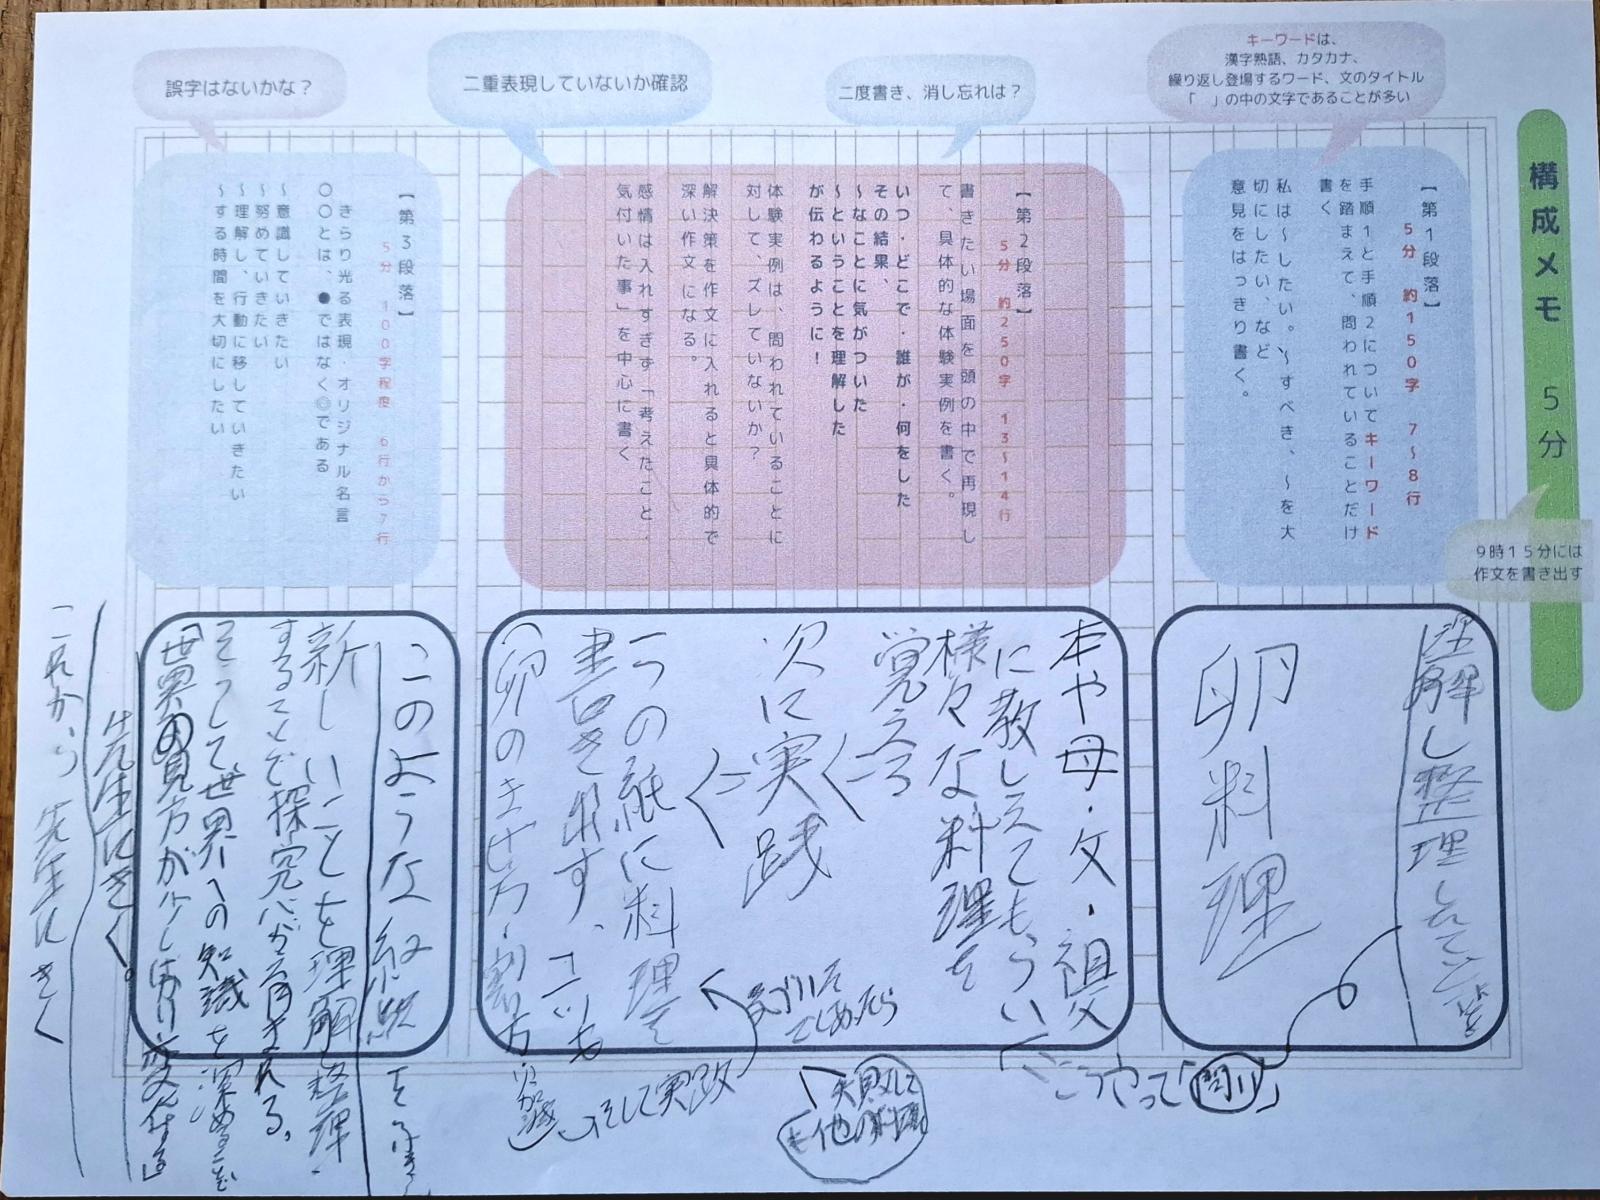 構成メモ 5分
9時15分には
作文を書き出す
キーワードは、
漢字熟語、カタカナ、
繰り返し登場するワード、文のタイトル
「 」の中の文字であることが多い
二度書き、消し忘れは？
二重表現していないか確認
誤字はないかな？
【第1段落】
5分 約150字 7〜8行
手順1と手順2についてキーワード
を踏まえて、問われていることだけ
書く
私は〜したい。〜すべき、〜を大
切にしたい、など
意見をはっきり書く。
【第2段落】
5分 約250字 13〜14行
書きたい場面を頭の中で再現し
て、具体的な体験実例を書く。
いつ・どこで・誰が・何をした
その結果、
〜なことに気がついた
〜ということを理解した
が伝わるように！
体験実例は、問われていることに
対して、ズレていないか？
解決策を作文に入れると具体的で
深い作文になる。
感情は入れすぎず「考えたこと、
気付いた事」を中心に書く
【第3段落】
5分 100字程度 6行から7行
きらり光る表現・オリジナル名言
〇〇とは、●ではなく◎である
〜意識していきたい
〜努めていきたい
〜理解し、行動に移していきたい
〜する時間を大切にしたい
理解し整理し
卵料理
こうやって「問い」
本や母・父・祖父
に教えてもらい
様々な料理を
覚える
次に実践
失敗して
も他の
一つの紙に料理を
書き出す、コツも
(卵のまぜ方・割り方・火加減)
そして実践
このような経験を
新しいことを理解・整理・
することで探究心が育まれる。
そうして世界への知識を深めること
「世界の見方が少しばかり変化する」
先生にきく。
これから先生にきく